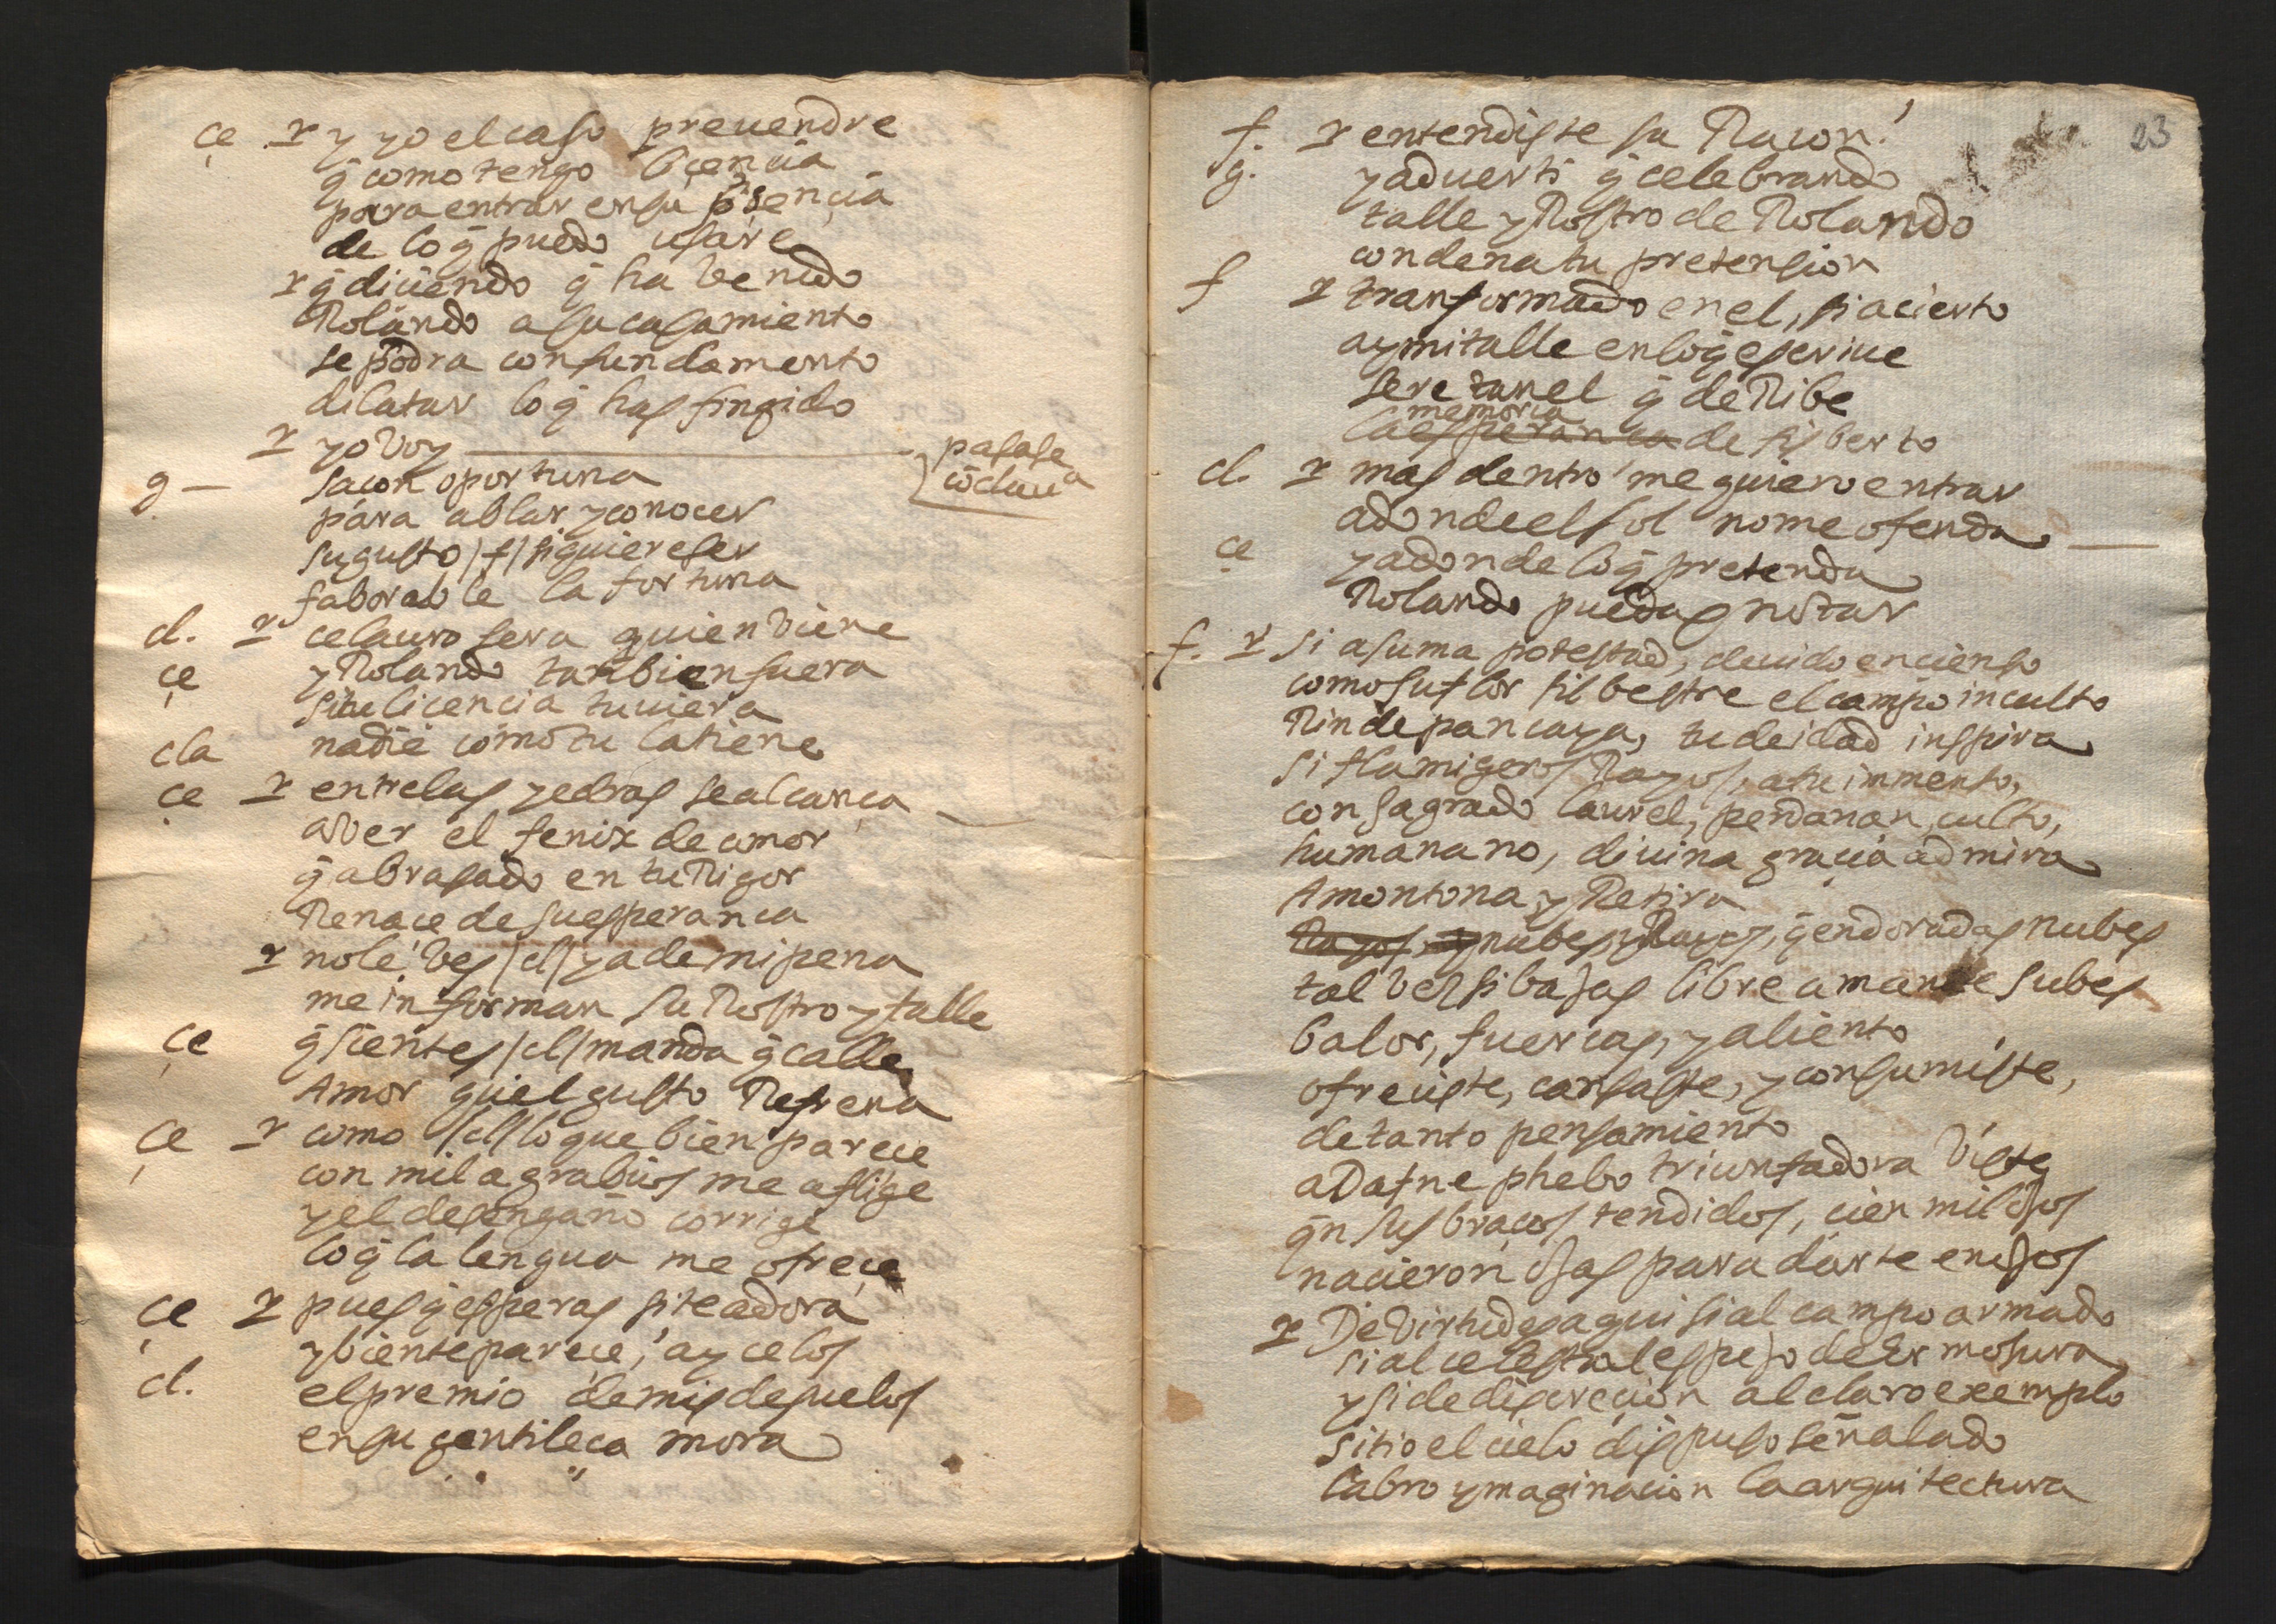 çe r y yo el caso prevendre
q̄ como tengo licençia
para entrar en su p̄sençia
de lo q̄ puedo usare
r q̄ diciendo q̄ ha venido
Rolando a su casamiento
se podra con fundamento
dilatar lo q̄ has fingido
r yo voy pasase
g sacon oportuna cō clau a
para ablar y conocer
su gusto /f/ si quiere ser
faborable la fortuna
cl. r celauro sera quien viene
çe y Rolando tambien fuera
si tu licencia tuviera
cla nadie como tu la tiene
çe r entre las yedras se alcança
a ver el fenix de amor
q̄ abrasado en tu Rigor
Renace de su esperanca
r no le ves /cl/ ya de mi pena
me informan su Rostro y talle
çe q̄ sientes /cl/ manda q̄ calle
Amor qui el gusto Refrena
çe r como /cl/ lo que bien parece
con mil agrabios me aflige
y el desengaño corrige
lo q̄ la lengua me ofreçe
çe r pues q̄ esperas si te adora
y bien te parece, ay celos
cl. el premio de mis desuelos
en su gentileca mora
23
f. r entendiste su Racon?
g. y adverti q̄ celebrando
talle y Rostro de Rolando
condena tu pretension
f r transformado en el, si acierto
ay mi talle en lo q̄ escrive
sere tan el q̄ deRibe
memoria
la esperanca de fisberto
cl. r mas dentro me quiero entrar
adonde el sol no me ofenda
çe y adonde lo q̄ pretenda
Rolando puedas notar
f. r si a suma potestad, devido encienso
como su flor silbestre el campo inculto
Rinde pancaya, tu deidad inspira
si flamigeros Rayos, a tu inmenso,
consagrado laurel, perdanan, culto,
humana no, divina gracia admira
Amontona y Retira
Rayos, y nubes Rayos, q̄ en doradas nubes
tal vez si bajas libre amante subes
balor, fuercas, y aliento
ofreciste, cansaste, y consumiste,
de tanto pensamiento
a Dafne phebo triunfadora viste
q̄ n sus bracos tendidos, cien mil ojos
nacieron ojas para darte enojos
r De virtudes aqui si al campo armado
si al celestial espejo de Ermosura
y si de discrecion al claro exemplo
sitio el cielo dispuso señalado
labro ymaginacion la arquitectura